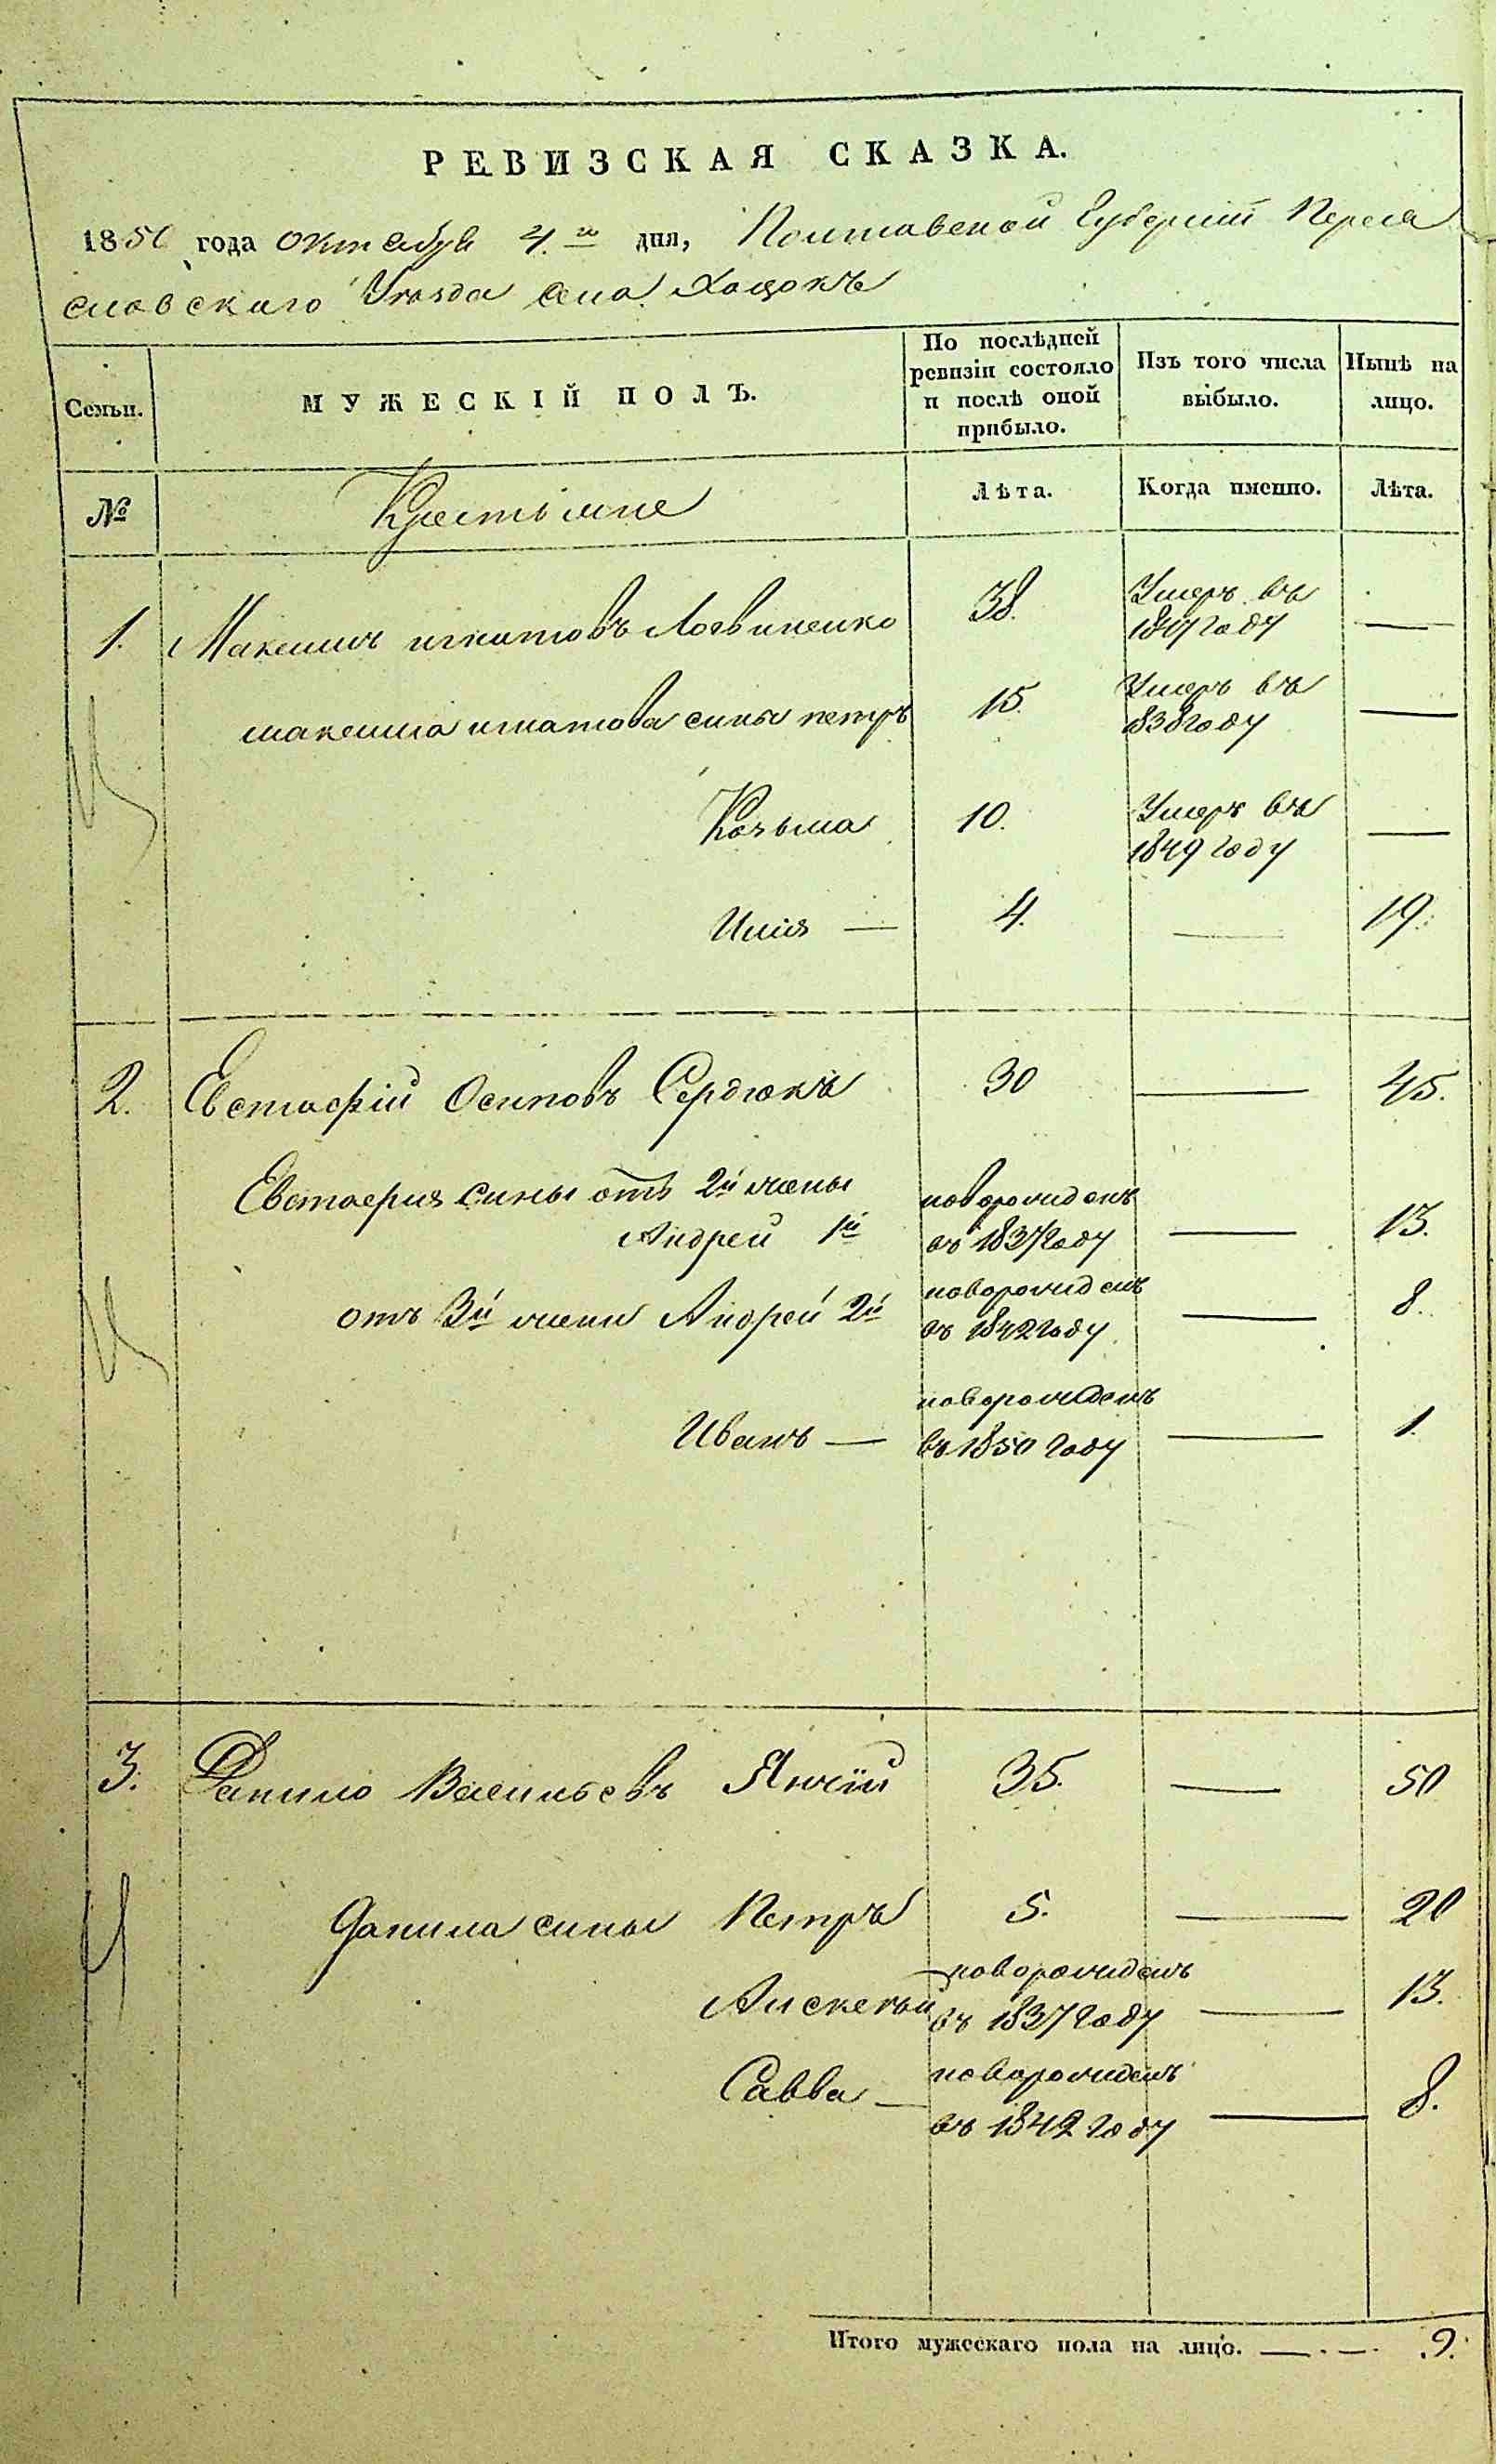 РЕВИЗСКАЯ СКАЗКА.
1850 года октября 4.го дня, Полтавской Губерніи Перея
славскаго Уезда села Хоцокъ
Семьи.
МУЖЕСКІЙ ПОЛЪ.
По послѣдней
ревизіи состояло
и послѣ оной
прибыло.
Изъ того числа
выбыло.
Нынѣ на
лицо.
№
Крестьяне
Лѣта.
Когда именно.
Лѣта.
1. Максимъ игнатовъ Логвиненко 38. Умеръ въ
году —
максима игнатова сины петръ 15. Умеръ въ
1838 году —
Козьма 10. Умеръ въ
1849 году —
Илия — 4. — 19.
2. Евстафій Осиповъ Сердюкъ 30 — 45.
Евстафия сины отъ 2й жены новорожденъ
Андрей 1й въ 1837 году — 13.
отъ 3й жени Андрей 2й новорожденъ
въ 1842 году — 8.
Иванъ — новорожденъ
въ 1850 году — 1.
3. Данило Васильевъ 35. — 50
Данила сины Петръ 5. — 20
новорожденъ
Алексей въ 1837 году — 13.
Савва — новорожденъ
въ 1842 году — 8.
Итого мужескаго пола на лицо. — . — . 9.